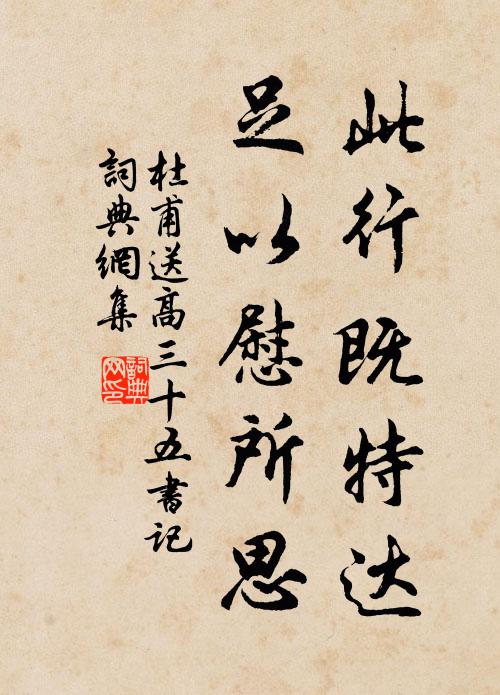 此行既特达
足以慰所思
杜甫送高三十五書記
詞典網集
詞典网印